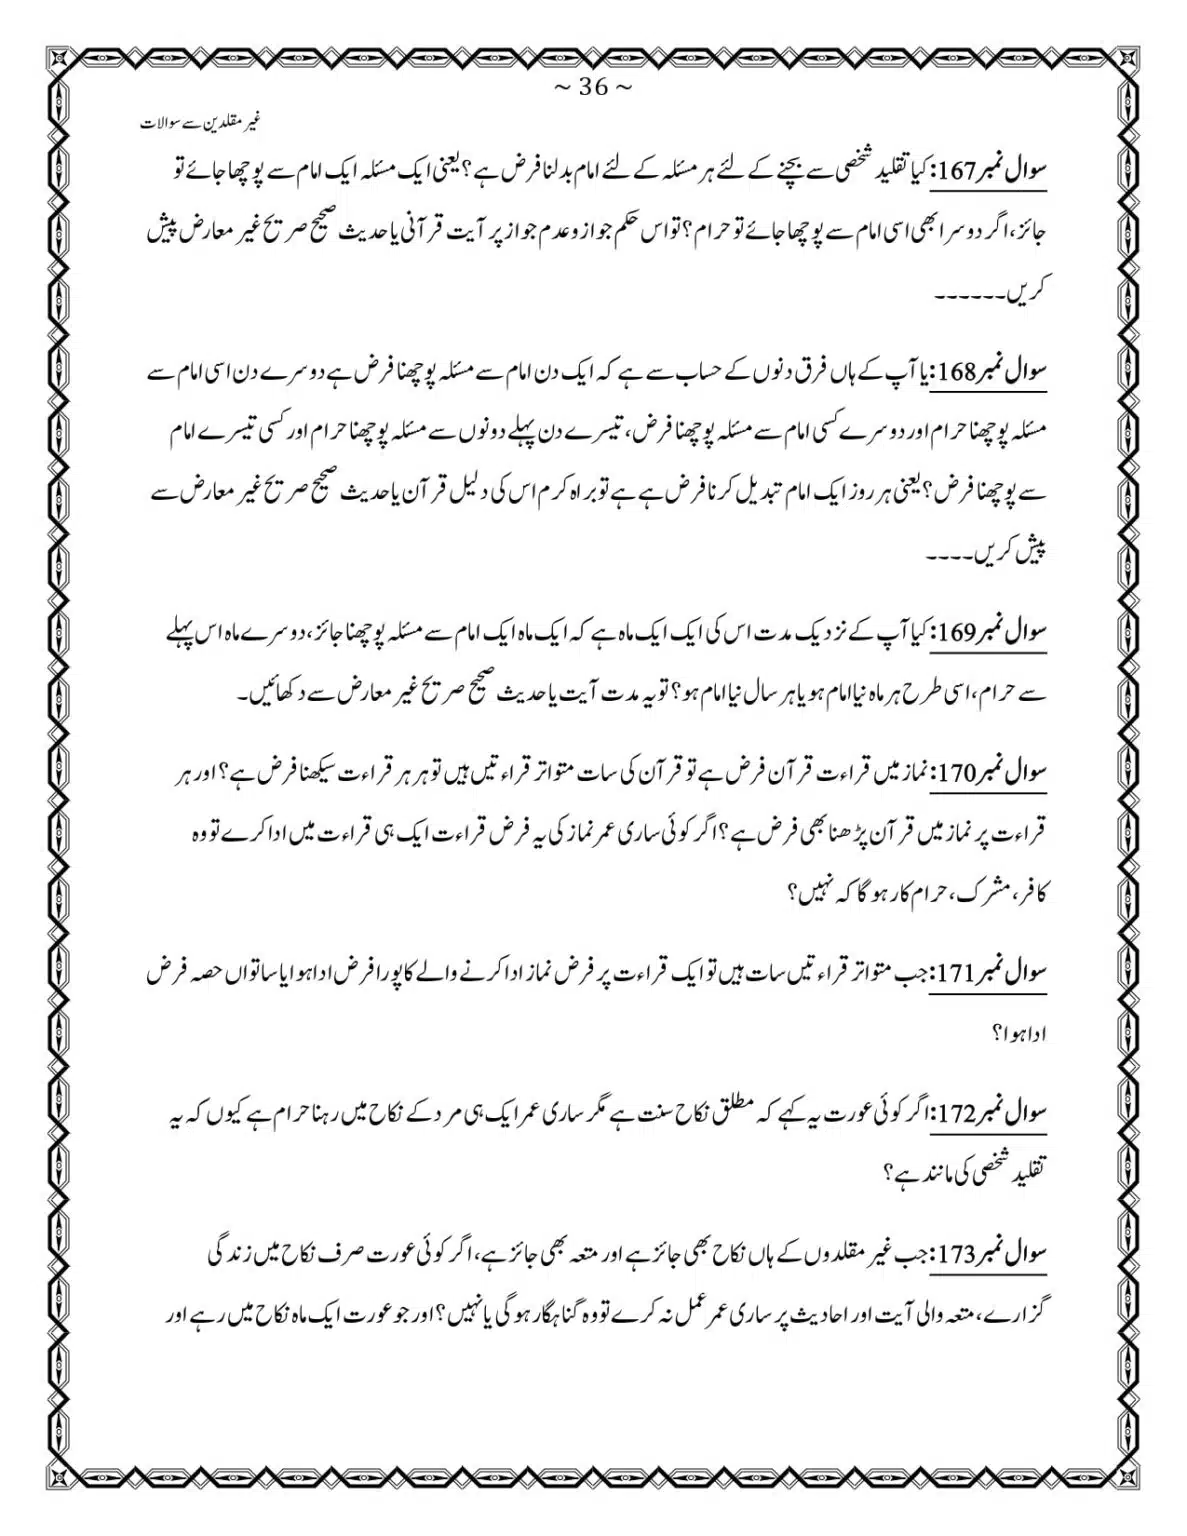 ~ 36 ~
غیر مقلدین سے سوالات
سوال نمبر167: کیا تقلید شخصی سے بچنے کے لئے ہر مسئلہ کے لئے امام بدلنا فرض ہے؟ یعنی ایک مسئلہ ایک امام سے پوچھا جائے تو
جائز، اگر دوسرا بھی اسی امام سے پوچھا جائے تو حرام؟ تو اس حکم جواز و عدم جواز پر آیت قرآنی یا حدیث صحیح صریح غیر معارض پیش
کریں۔۔۔۔۔۔
سوال نمبر168: یا آپ کے ہاں فرق دنوں کے حساب سے ہے کہ ایک دن امام سے مسئلہ پوچھنا فرض ہے دوسرے دن اسی امام سے
مسئلہ پوچھنا حرام اور دوسرے کسی امام سے مسئلہ پوچھنا فرض، تیسرے دن پہلے دونوں سے مسئلہ پوچھنا حرام اور کسی تیسرے امام
سے پوچھنا فرض؟ یعنی ہر روز ایک امام تبدیل کرنا فرض ہے ہے تو براہ کرم اس کی دلیل قرآن یا حدیث صحیح صریح غیر معارض سے
پیش کریں۔۔۔۔
سوال نمبر169: کیا آپ کے نزدیک مدت اس کی ایک ایک ماہ ہے کہ ایک ماہ ایک امام سے مسئلہ پوچھنا جائز، دوسرے ماہ اس پہلے
سے حرام، اسی طرح ہر ماہ نیا امام ہو یا ہر سال نیا امام ہو؟ تو یہ مدت آیت یا حدیث صحیح صریح غیر معارض سے دکھائیں۔
سوال نمبر170: نماز میں قراءت قرآن فرض ہے تو قرآن کی سات متواتر قراءتیں ہیں تو ہر ہر قراءت سیکھنا فرض ہے؟ اور ہر
قراءت پر نماز میں قرآن پڑھنا بھی فرض ہے؟ اگر کوئی ساری عمر نماز کی یہ فرض قراءت ایک ہی قراءت میں ادا کرے تو وہ
کافر، مشرک، حرام کار ہو گا کہ نہیں؟
سوال نمبر171: جب متواتر قراءتیں سات ہیں تو ایک قراءت پر فرض نماز ادا کرنے والے کا پورا فرض ادا ہوا یا ساتواں حصہ فرض
ادا ہوا؟
سوال نمبر172: اگر کوئی عورت یہ کہے کہ مطلق نکاح سنت ہے مگر ساری عمر ایک ہی مرد کے نکاح میں رہنا حرام ہے کیوں کہ یہ
تقلید شخصی کی مانند ہے؟
سوال نمبر173: جب غیر مقلدوں کے ہاں نکاح بھی جائز ہے اور متعہ بھی جائز ہے، اگر کوئی عورت صرف نکاح میں زندگی
گزارے، متعہ والی آیت اور احادیث پر ساری عمر عمل نہ کرے تو وہ گناہگار ہو گی یا نہیں؟ اور جو عورت ایک ماہ نکاح میں رہے اور